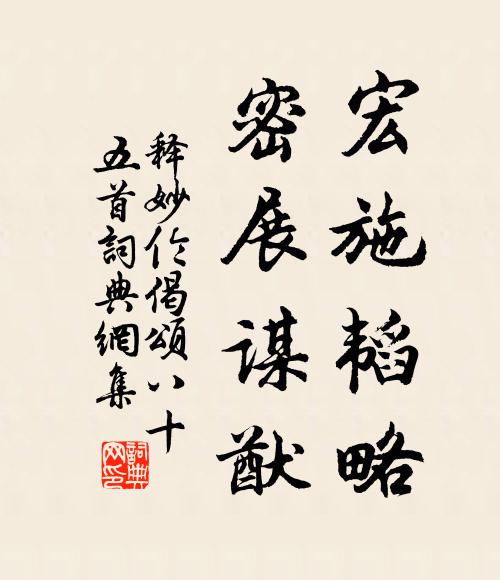 宏施韬略
密展谋猷
释妙伦偈颂八十
五首詞典網集
詞典
网印